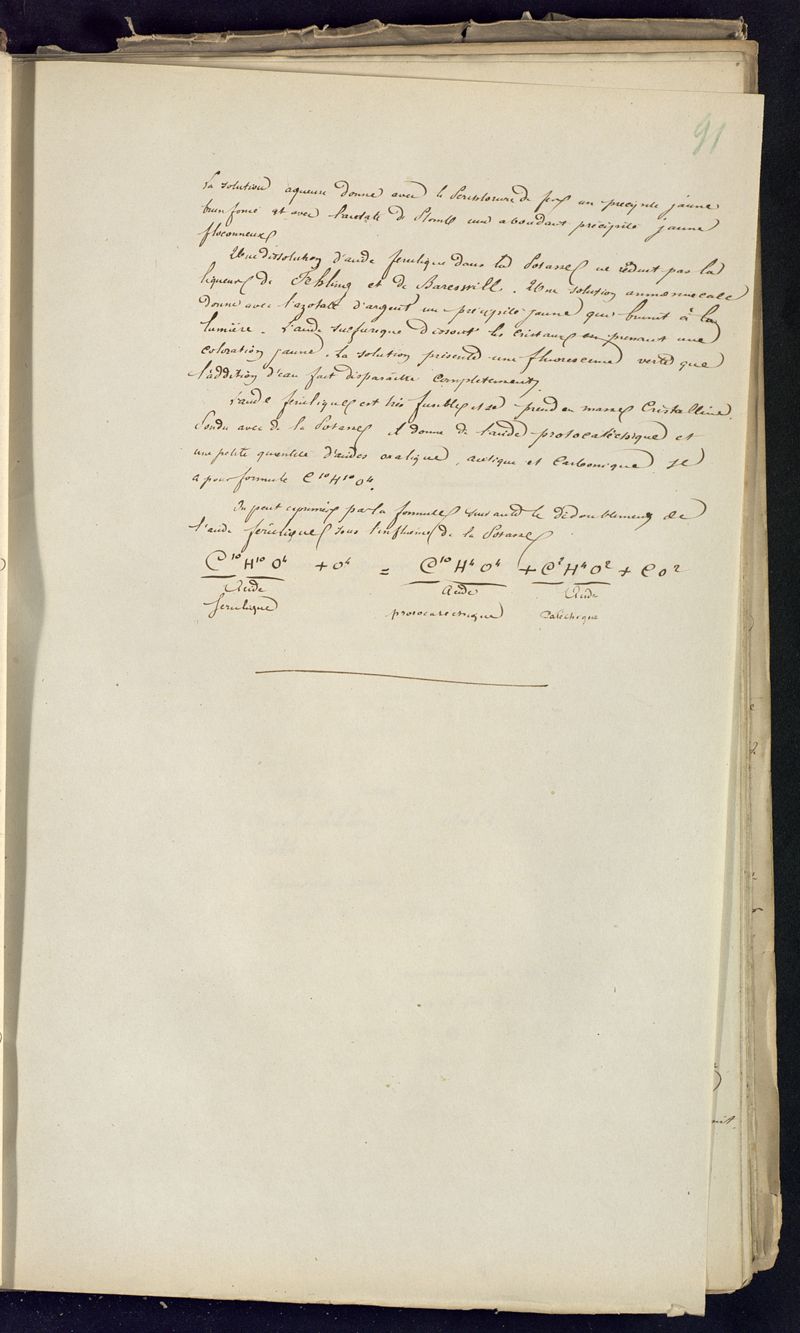 91
La solution aqueuse donne avec le perchlorure de fer un precipité jaune
brun foncé et avec l'acetate de Plomb un abondant précipité jaune
floconneux
Une dissolution d'acide ferulique dans la Potasse ne réduit pas la
liqueur de Fehling et de Bareswill. Une solution ammoniacale
donne avec l'azotate d'argent un précipité jaune qui brunit à la
lumière. L'acide sulfurique dissout les cristaux en prenant une
coloration jaune. La solution présente une fluorescence verte que
l'addition d'eau fait disparaître complètement.
L'acide ferulique est très fusible et se prend en masse Cristalline.
Fondu avec de la Potasse il donne de l'acide protocatéchique et
une petite quantité d'acides oxalique, acétique et Carbonique. Il
a pour formule C¹⁰H¹⁰O⁴.
On peut exprimer par la formule suivante le dédoublement de
l'acide férulique sous l'influence de la Potasse
C¹⁰H¹⁰O⁴ + O⁴ = C¹⁰H⁴O⁴ + C²H⁴O² + CO²
Acide Acide Acide
ferulique protocatechique Catéchique